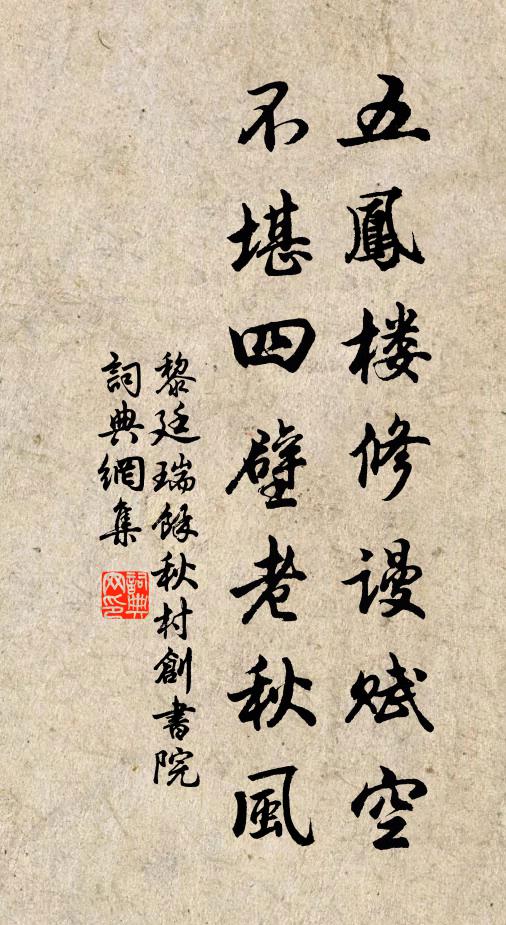 五鳳楼修谩赋空
不堪四壁老秋風
黎廷瑞餘秋村創書院
詞典網集
詞典网印